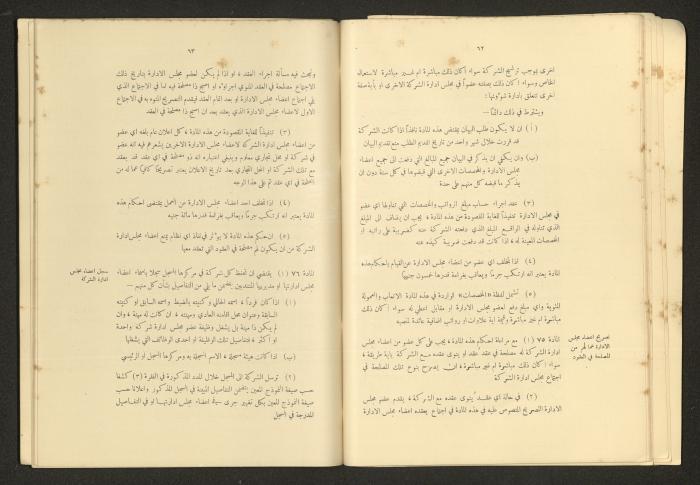 ٦٢
اخرى بموجب ترشيح الشركة سواء اكان ذلك مباشرة ام غير مباشرة لاستعماله
الخاص وسواء اكان ذلك بصفته عضواً في مجلس ادارة الشركة الاخرى او باية صفة
اخرى تتعلق بادارة شؤونها :
ويشترط في ذلك دائماً —
( أ ) ان لا يكون طلب البيان بمقتضى هذه المادة نافذاً اذا كانت الشركة
قد قررت خلال شهر واحد من تاريخ تقديم الطلب منع تقديم البيان
(ب) وان يكتفى ان يذكر في البيان جميع المبالغ التي دفعت الى جميع اعضاء
مجلس الادارة والمخصصات الاخرى التي قبضوها في كل سنة دون ان
يذكر ما قبضه كل منهم على حدة
(٣) عند اجراء حساب مبلغ الرواتب والمخصصات التي تناولها اي عضو
في مجلس الادارة تنفيذاً للغاية المقصودة من هذه المادة ، يجب ان يضاف الى المبلغ
الذي تناوله في الواقع المبلغ الذي دفعته الشركة عنه كضريبة على راتبه او
المخصصات المعينة له ، اذا كانت قد دفعت ضريبة كهذه عنه
(٤) اذا تخلف اي عضو من اعضاء مجلس الادارة عن القيام باحكام هذه
المادة يعتبر انه ارتكب جرماً ويعاقب بغرامة قدرها خمسون جنيهاً
(٥) تشمل لفظة «المخصصات» الواردة في هذه المادة الاتعاب والعمولة
المئوية واي مبلغ دفع لعضو مجلس الادارة او مقابل اعطي له سواء اكان ذلك
مباشرة ام غير مباشرة واية علاوات او رواتب اضافية عائدة لمنصبه
تصريح اعضاء مجلس
الادارة عما لهم من
المصلحة في العقود
المادة ٧٥ (١) مع مراعاة احكام هذه المادة ، يجب على كل عضو من اعضاء مجلس
ادارة الشركة له مصلحة في عقد عقد او ينوى عقده مع الشركة باية طريقة ،
سواء اكان ذلك مباشرة ام غير مباشرة ، ان يصرح بنوع تلك المصلحة في
اجتماع مجلس ادارة الشركة
(٢) في حالة اي عقد ينوى عقده مع الشركة ، يقدم عضو مجلس
الادارة التصريح المنصوص عليه في هذه المادة في اجتماع يعقده اعضاء مجلس الادارة
٦٣
وتبحث فيه مسألة اجراء العقد ، او اذا لم يكن لعضو مجلس الادارة بتاريخ ذلك
الاجتماع مصلحة في العقد المنوي اجراؤه او اصبح ذا مصلحة فيه ففي الاجتماع الذي
يلي اجتماع اعضاء مجلس الادارة او بعد اتمام العقد فيقدم التصريح المنوه به في الاجتماع
الاول لاعضاء مجلس الادارة الذي يعقد بعد ان اصبح ذا مصلحة في العقد
(٣) تنفيذاً للغاية المقصودة من هذه المادة ، كل اعلان عام بلغه اي عضو
من اعضاء مجلس ادارة الشركة لاعضاء مجلس الادارة الاخرين يشعرهم فيه انه عضو
في شركة او محل تجاري معلوم وينبغي اعتباره انه ذو مصلحة في اي عقد قد يعقد
مع تلك الشركة او المحل التجاري بعد تاريخ الاعلان يعتبر تصريحاً كافياً عما له من
المصلحة في اي عقد تم على هذا الوجه
(٤) اذا تخلف احد اعضاء مجلس الادارة عن العمل بمقتضى احكام هذه
المادة يعتبر انه ارتكب جرماً ويعاقب بغرامة قدرها مائة جنيه
(٥) ان حكم هذه المادة لا يؤثر في نفاذ اي نظام يمنع اعضاء مجلس ادارة
الشركة من ان يكون لهم مصلحة في العقود التي تعقد معها
سجل اعضاء مجلس
ادارة الشركة
المادة ٧٦ (١) يقتضى ان تحفظ كل شركة في مركزها المسجل سجلا باسماء اعضاء
مجلس ادارتها او مديريها المنتدبين يتضمن ما يلي من التفاصيل بشأن كل منهم —
( أ ) اذا كان فرداً ، اسمه الحالي وكنيته بالضبط واسمه السابق او كنيته
السابقة وعنوان محل اقامته العادي ومهنته ، ان كانت له مهنة ، وان
لم يكن ذا مهنة بل يشغل وظيفة عضو مجلس ادارة شركة واحدة
او اكثر ، فتفاصيل تلك الوظيفة او احدى الوظائف التي يشغلها
(ب) اذا كانت هيئة مسجلة ، الاسم المسجلة به ومركزها المسجل او الرئيسي
(٢) ترسل الشركة الى المسجل خلال المدد المذكورة في الفقرة (٣) كشفاً
حسب صيغة النموذج المعين يتضمن التفاصيل المبينة في السجل المذكور واعلاناً حسب
صيغة النموذج المعين بكل تغيير جرى في اعضاء مجلس ادارتها او في التفاصيل
المدرجة في السجل